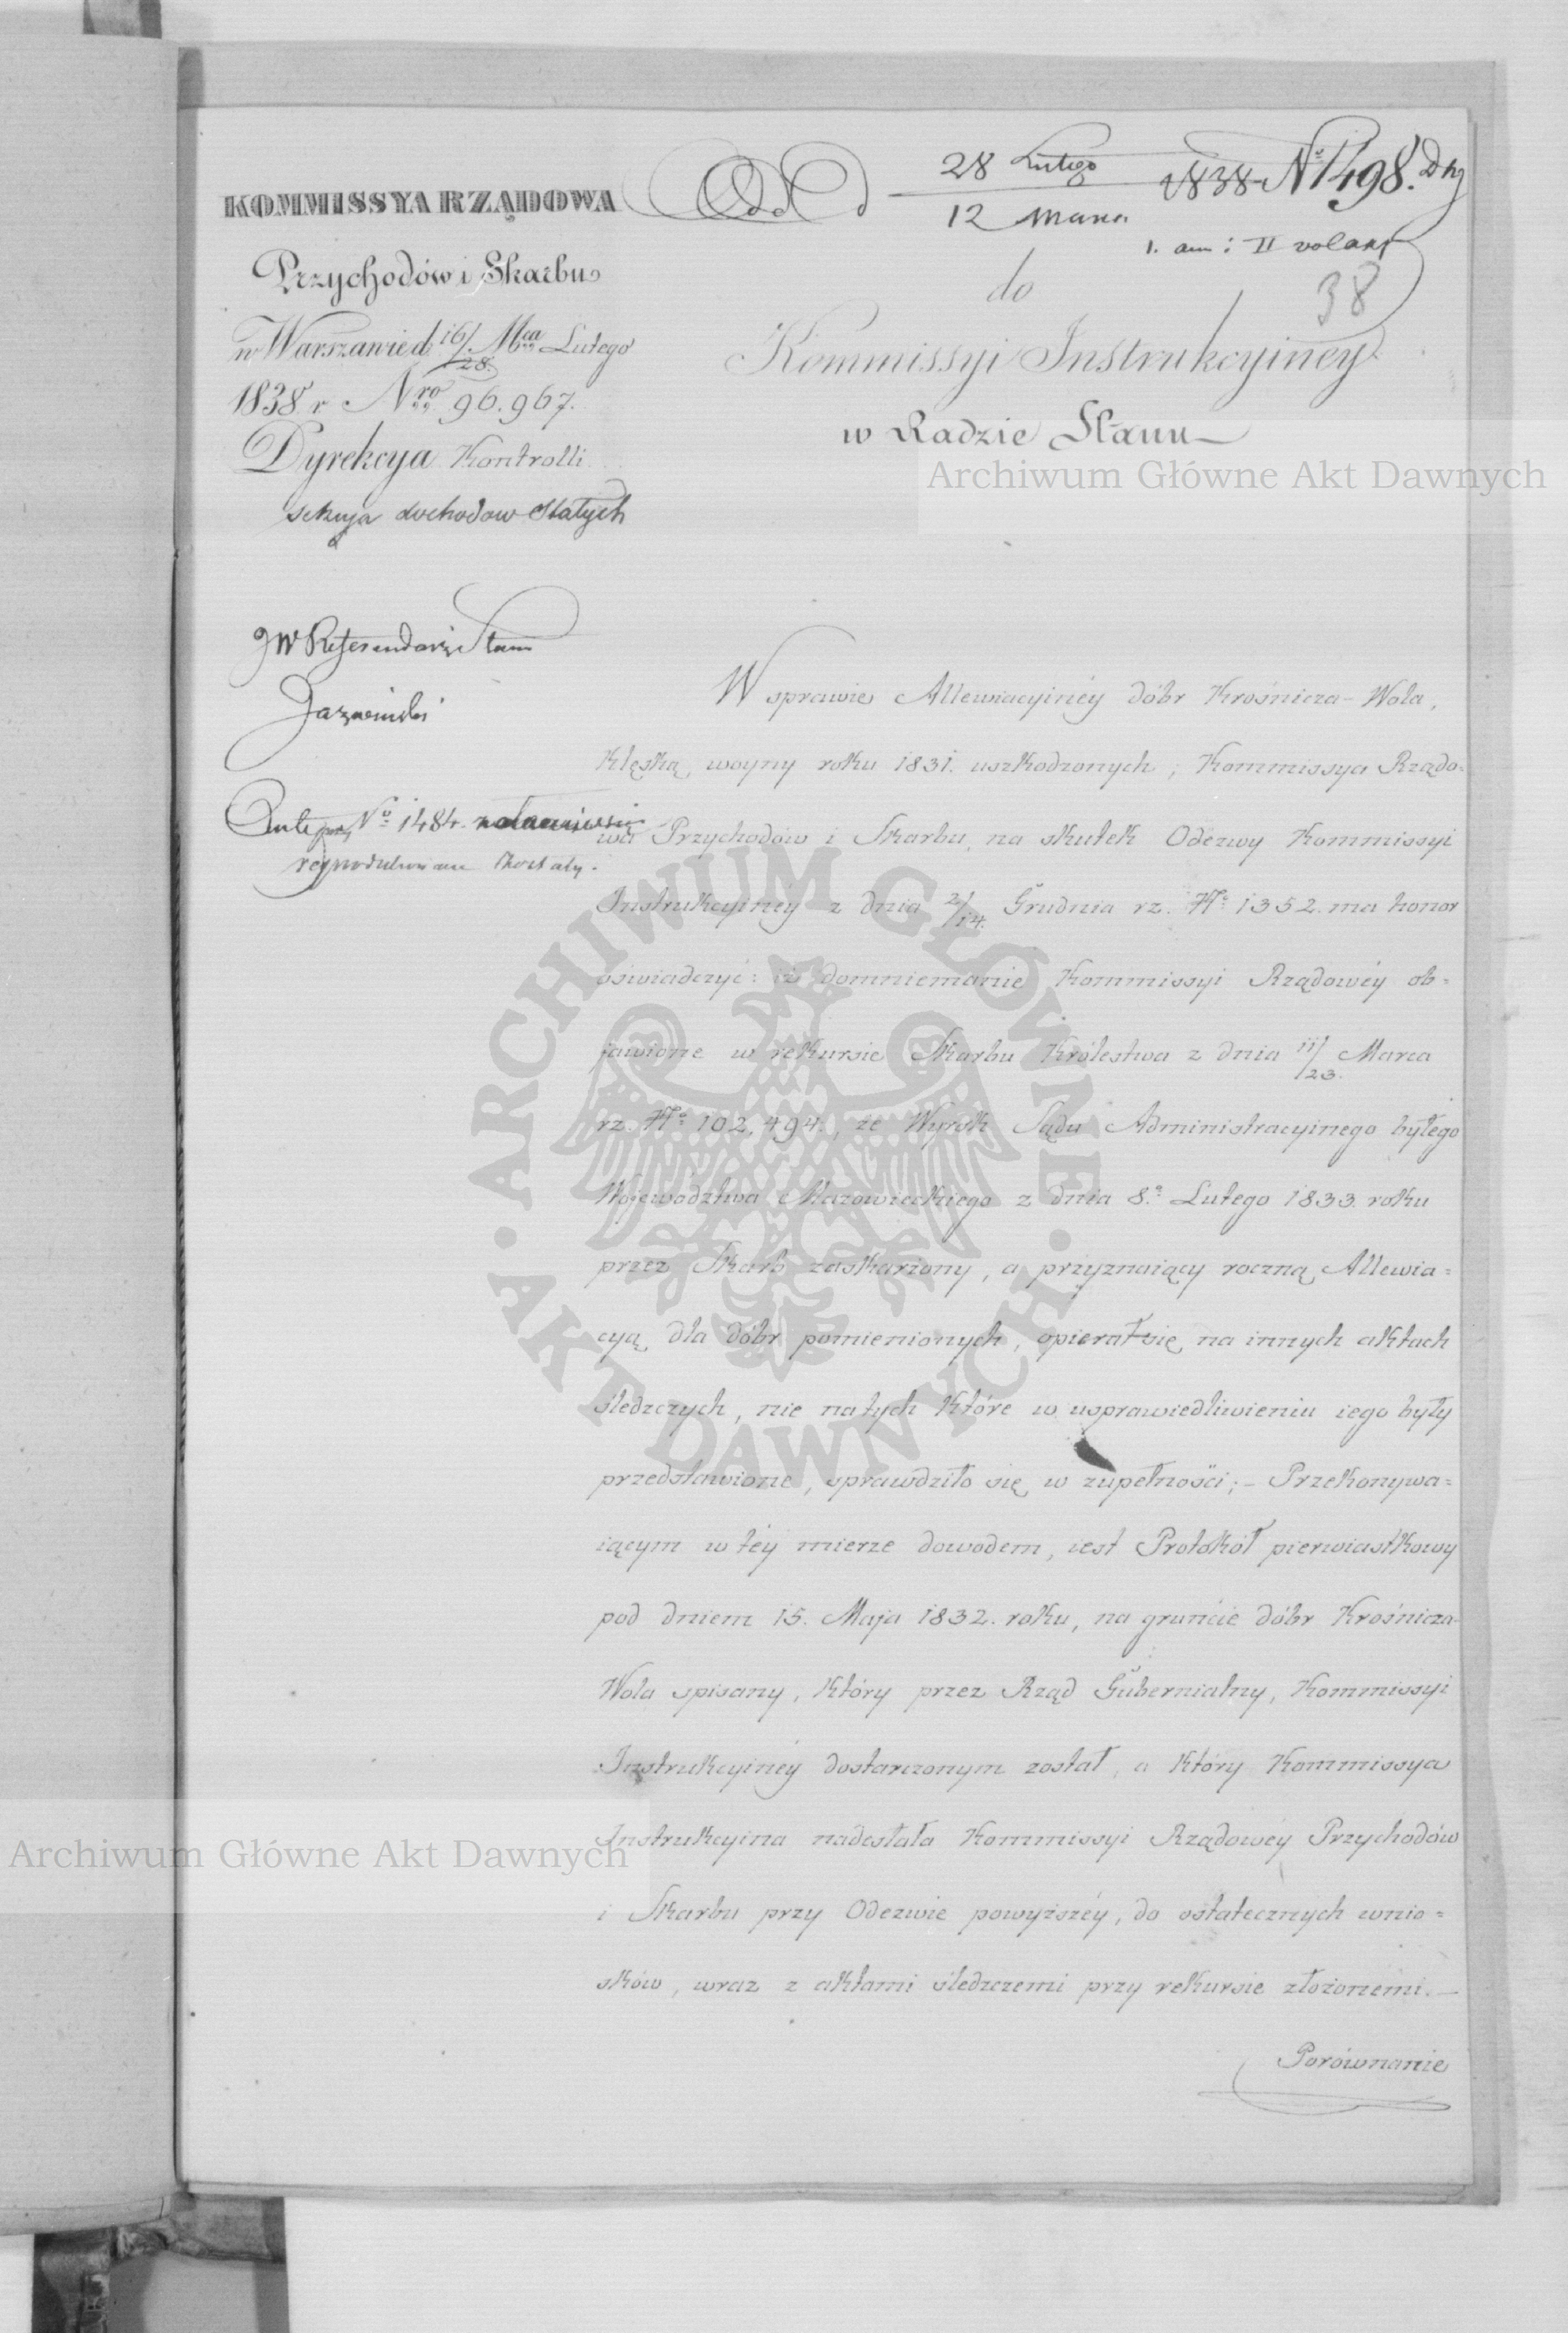 KOMMISSYA RZĄDOWA
Przychodów i Skarbu
w Warszawie d. 16/28 Mca Lutego
1838 r. Nro 96.967.
Dyrekcya Kontrolli
sekcyja dochodow Stałych
Odd
28 Lutego
12 Marca
1838 Nº 1498.
38
do
Kommissyi Instrukcyiney
w Radzie Stanu
JW Referendarz Stanu
Nº 1484.
W sprawie Allewiacyinéy dóbr Krośnicza-Wola,
klęską woyny roku 1831. uszkodzonych, Kommissya Rządo=
wa Przychodów i Skarbu, na skutek Odezwy Kommissyi
Instrukcyinéy z dnia 2/14. Grudnia rz. Nº 1352. ma honor
oświadczyć: iż domniemanie Kommissyi Rządowéy ob=
jawione w rekursie Skarbu Królestwa z dnia 11/23. Marca
rz. Nº 102,494., że Wyrok Sądu Administracyinego byłego
Województwa Mazowieckiego z dnia 8º Lutego 1833. roku
przez Skarb zaskarżony, a przyznaiący roczną Allewia=
cyą dla dóbr pomienionych, opierał się na innych aktach
śledczych, nie na tych które w usprawiedliwieniu iego były
przedstawione, sprawdziło się w zupełności; – Przekonywa=
iącym w téy mierze dowodem, iest Protokół pierwiastkowy
pod dniem 15. Maja 1832. roku, na gruncie dóbr Krośnicza-
Wola spisany, który przez Rząd Gubernialny, Kommissyi
Instrukcyinéy dostarczonym został, a który Kommissya
Instrukcyina nadesłała Kommissyi Rządowéy Przychodów
i Skarbu przy Odezwie powyższéy, do ostatecznych wnio=
sków, wraz z aktami śledczemi przy rekursie złożonemi. —
Porównanie
Archiwum Główne Akt Dawnych
ARCHIWUM GŁÓWNE · AKT DAWNYCH ·
Archiwum Główne Akt Dawnych